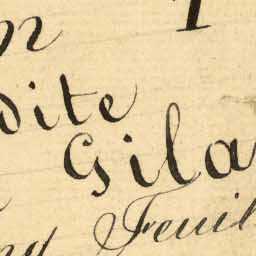 n
dite
Gila
ny Feuil